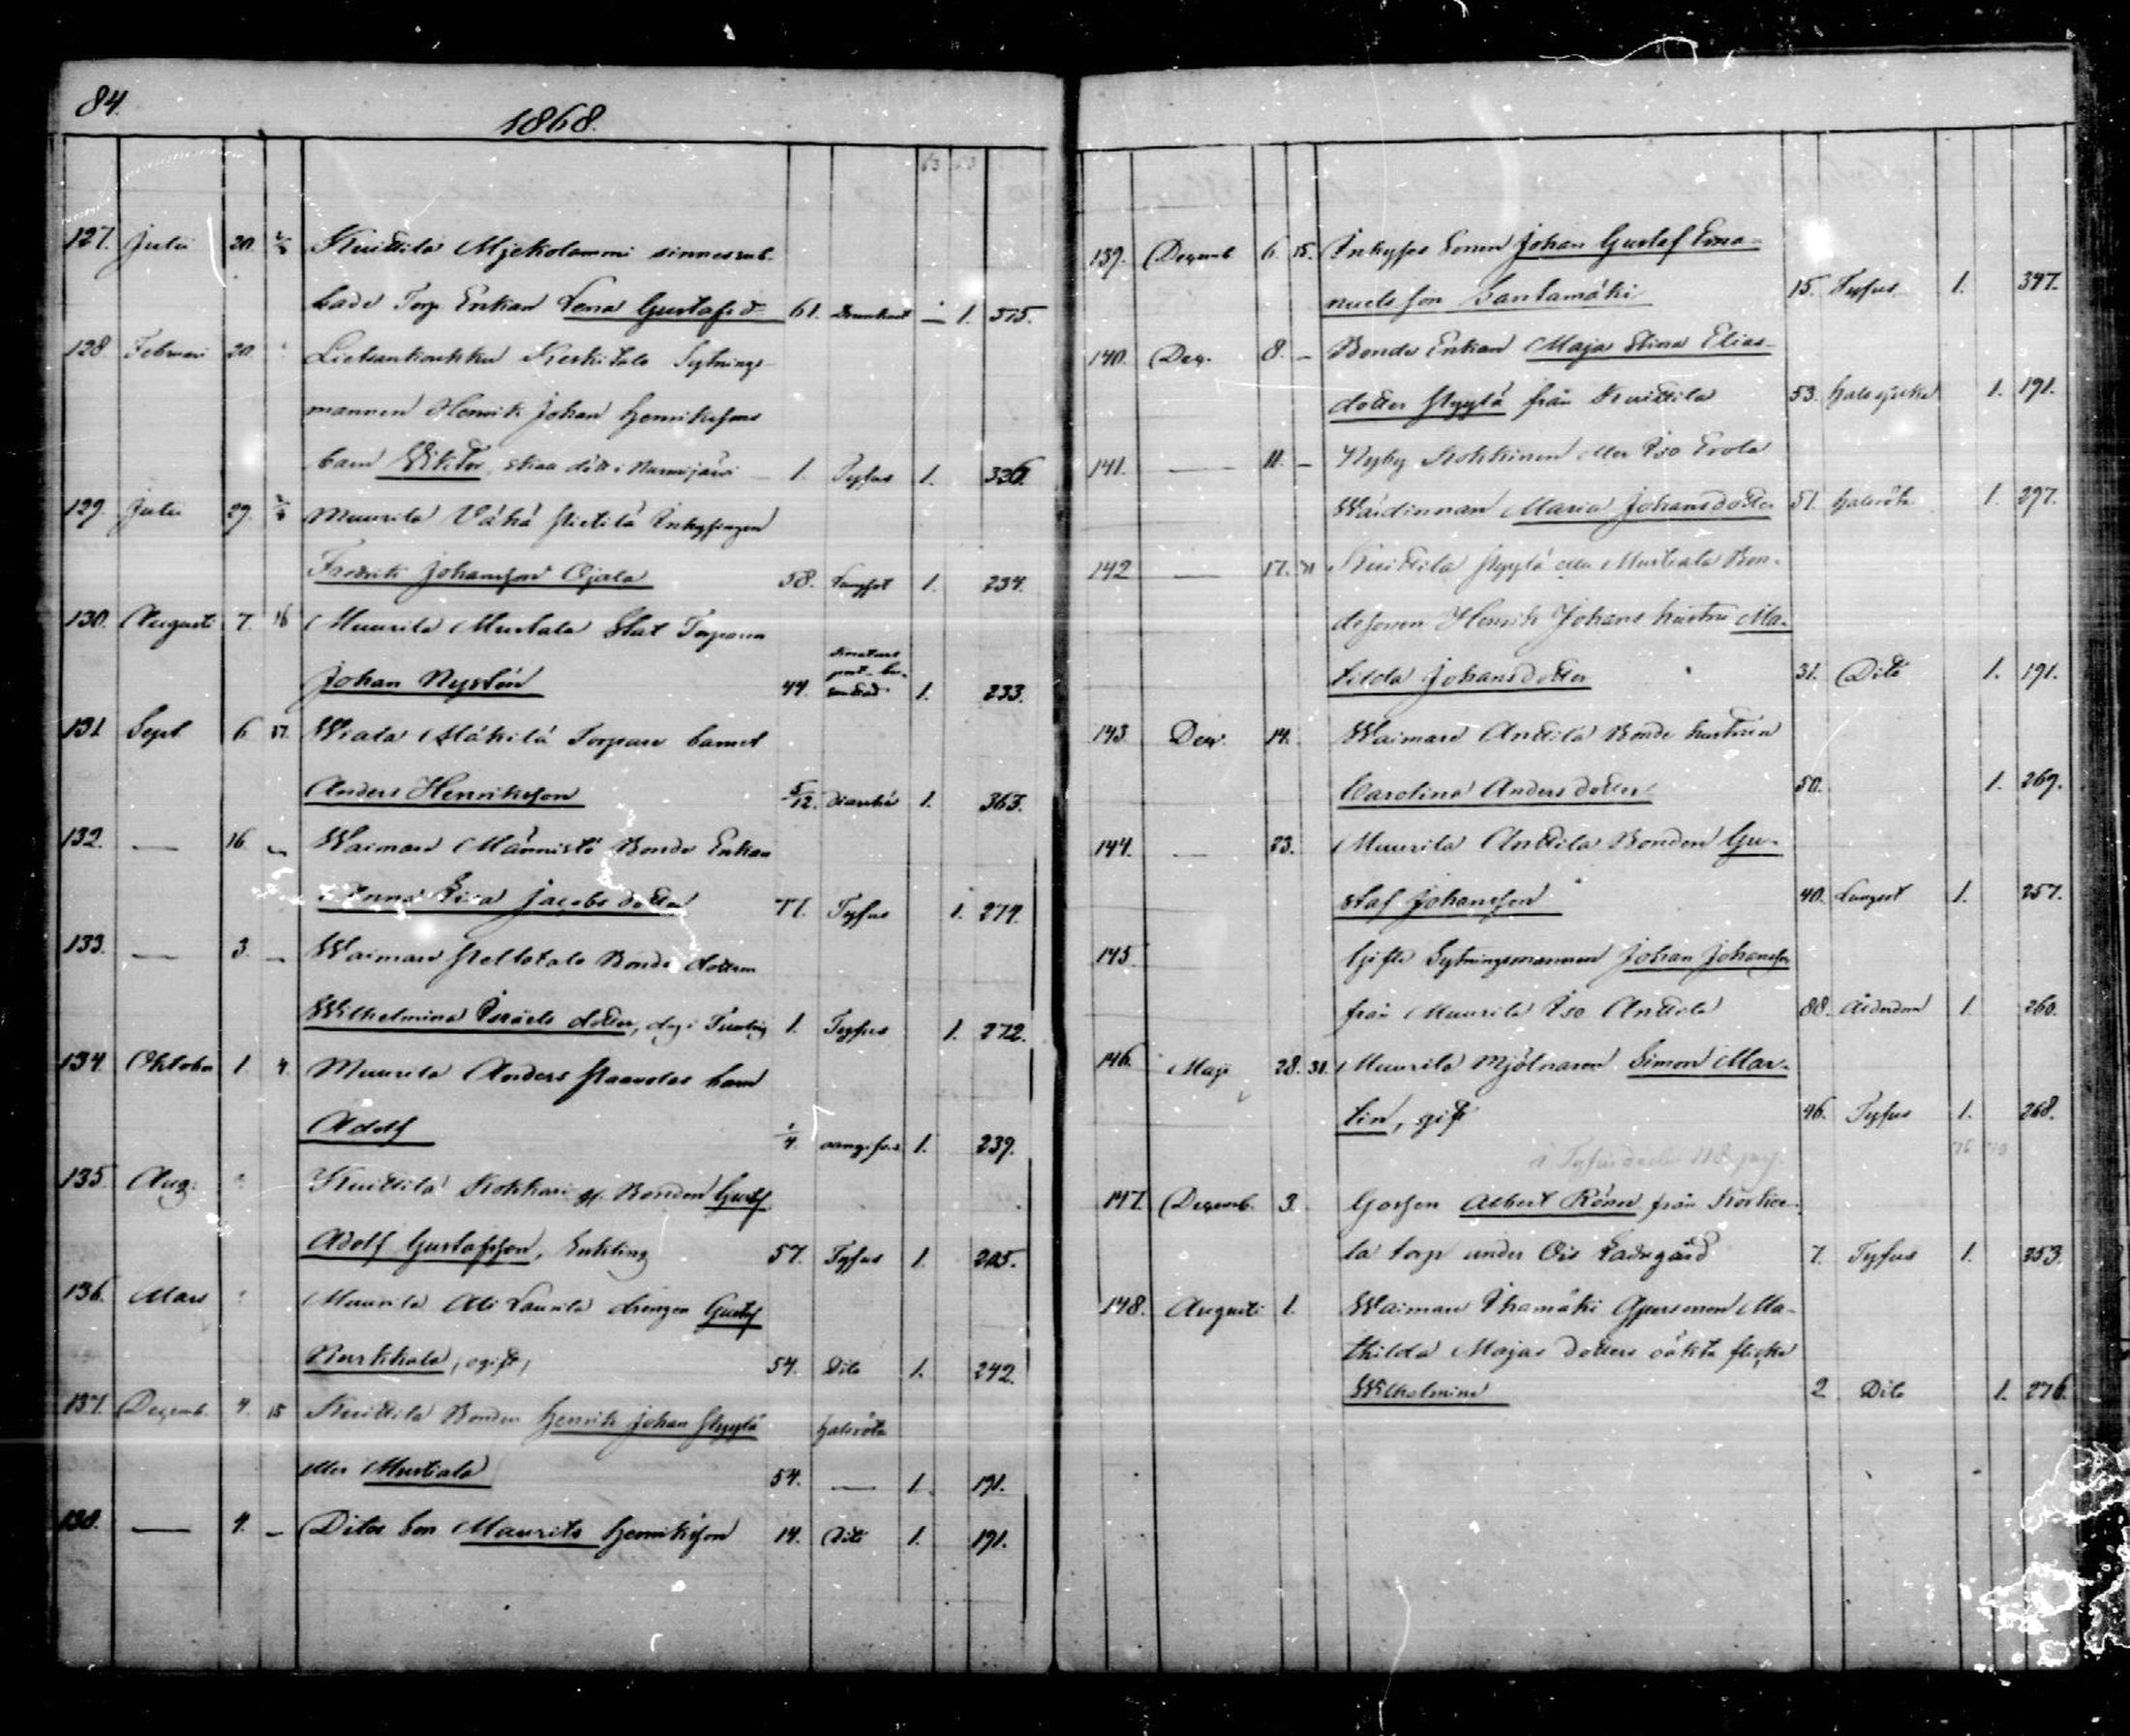 84.
1868.
127. Julii 20. 2/8 Kuittila Mjekolammi sinnesrub-
bade Torp Enkan Lena Gustafsd 61. Drunknat — 1. 315.
128 Februari 20. Lietsankoukku Keskitalo Sytnings-
mannen Henrik Johan Henrikssons
barn Viktor, skall dött i Nurmijärvi 1. Tyfus 1. 326.
129. Julii 29. 2/8 Muurila Vähä Pietilä Inhysingen
Fredrik Johansson Ojala 58. Lungsot 1. 234.
130. Augusti 7. 16 Muurila Mustala Stat Torparen
Johan Nystén 44. 1. 233.
131 Sept 6 27. Wiala Mäkilä Torpare barnet
Anders Henriksson 5/12. diarrhé 1. 363.
132. — 16. — Waimaro Männistö Bonde Enkan
Anna Lisa Jacobsdotter 77. Tyfus 1. 274.
133. — 3. — Waimaro Peltotalo Bonde dottern
Wilhelmina Israels dotter, dog i 1. Tyfus 1. 272.
134. Oktober 1. 4. Muurila Anders Paavolas barn
Adolf 1/4. oangifven 1. 239.
135. Aug: ? Kuittila Kokkari Bonden Gustf
Adolf Gustafsson, Enkling 57. Tyfus 1. 205.
136. Mars ? Muurila Ali Laurila drengen Gustaf
Kurkkala, ogift, 54. Dito 1. 242.
137. Decemb. 4. 15 Kuittila Bonden Henrik Johan Pyylä Halsröta
eller Mustiala 54. — 1. 191.
138. — 4. — Ditos Son Maurits Henriksson 14. Dito 1. 191.
139. Decemb 6. 15. Inhyses Sonen Johan Gustaf Ema-
nuelsson Santamäki 15. Tyfus 1. 347.
140. Dec. 8. — Bonde Enkan Maja Stina Elias-
dotter Pyylä från Kuittila 53. halssjuka 1. 191.
141. — 11. — Nyby Kokkinen eller Iso Erola
Wärdinnan Maria Johansdotter 51. halsröta 1. 297.
142 — 17. 21 Kuittila Pyylä eller Mustiala Bon-
desonen Henrik Johans hustru Ma-
tilda Johansdotter 31. Dito 1. 191.
143 Dec. 14. Waimaro Anttila Bonde hustrun
Carolina Andersdotter 50. 1. 269.
144. — 23. Muurila Anttila Bonden Gu-
staf Johansson 40. Lungsot 1. 257.
145 Gifte Sytningsmannen Johan Johansson
från Muurila Iso Anttila 88. Ålderdom 1. 260.
146. Maji 28. 31. Muurila Mjölnaren Simon Mar-
tin, gift 46. Tyfus 1. 268.
147. Decemb. 3. Gossen Albert Rönn från Korkee-
la torp under Ois Ladugård 7. Tyfus 1. 353.
148. Augusti 1. Waimaro Ihamäki Qpersonen Ma-
thilda Majas dotters oäkta flicka
Wilhelmina 2 Dito 1. 276.